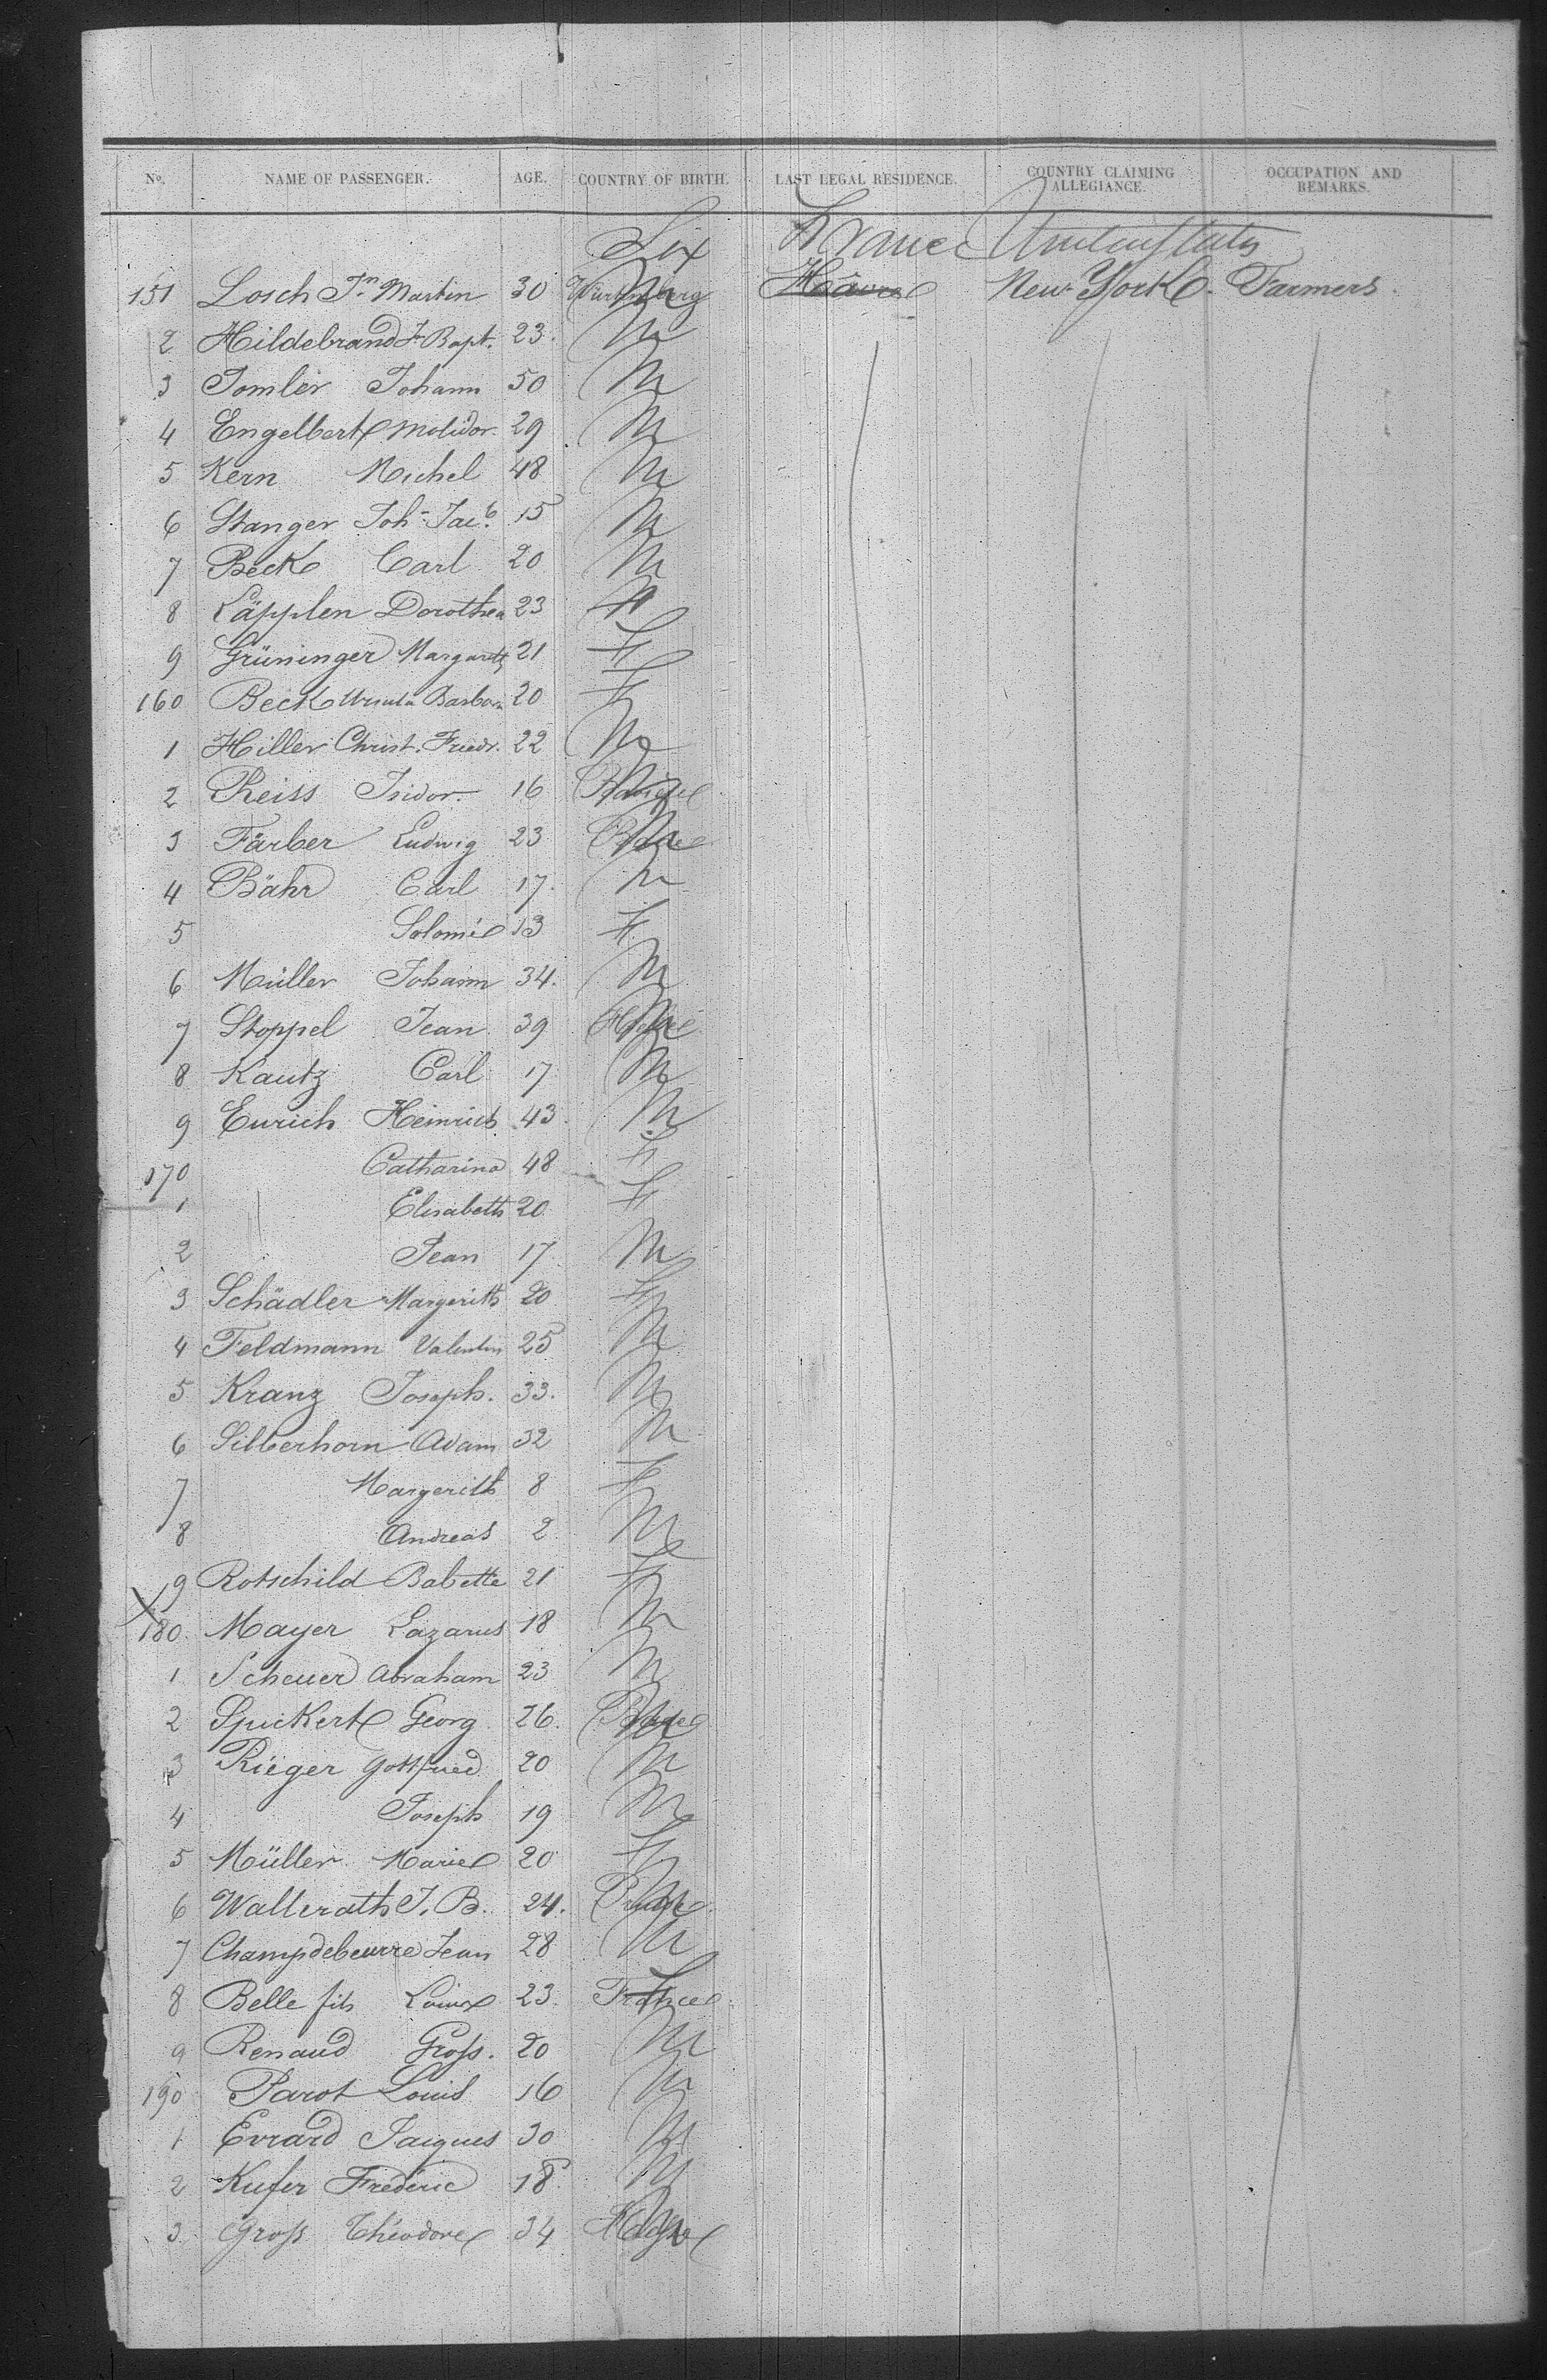 No. NAME OF PASSENGER. AGE. COUNTRY OF BIRTH. LAST LEGAL RESIDENCE. COUNTRY CLAIMING ALLEGIANCE. OCCUPATION AND REMARKS.
Sex France United States
151 Losch Jn Martin 30 Würtemberg M Hâvre New York. Farmers.
2 Hildebrand Jn Bapt. 23. M
3 Tomler Johann 50 M
4 Engelbert Melidor. 29 M
5 Kern Michel 48 M
6 Stanger Joh. Jacb. 15 M
7 Beck Carl 20 M
8 Läpplen Dorothea 23 F
9 Grüninger Margareth 21 F
160 Beck Ursula Barbara 20 F
1 Hiller Christ. Friedr. 22 M
2 Reiss Isidor. 16 M
3 Färber Ludwig 23 Bade M
4 Bähr Carl 17. M
5 Solomé 13 F
6 Müller Johann 34. M
7 Stoppel Jean 39 Hesse M
8 Kautz Carl 17 M
9 Eurich Heinrich 43. M
170 Catharina 48 F
1 Elisabeth 20 F
2 Jean 17 M
3 Schädler Margerith 20 F
4 Feldmann Valentin 25 M
5 Kranz Joseph. 33. M
6 Silberhorn Adam 32 M
7 Margerith 8 F
8 Andreas 2 M
9 Rotschild Babette 21 F
180 Mayer Lazarus 18 M
1 Scheuer Abraham 23 M
2 Spickert Georg 26. M
3 Rieger Gottfried 20 M
4 Joseph 19 M
5 Müller Marie 20 F
6 Wallerath J. B. 24. Prusse M
7 Champdebeurre Jean 28 M
8 Belle fils Louise 23. France F
9 Renaud Gross. 20 M
190 Parot Louis 16 M
1 Evrard Jacques 30 M
2 Kufer Frédéric 18 M
3 Gross Théodore 34 M